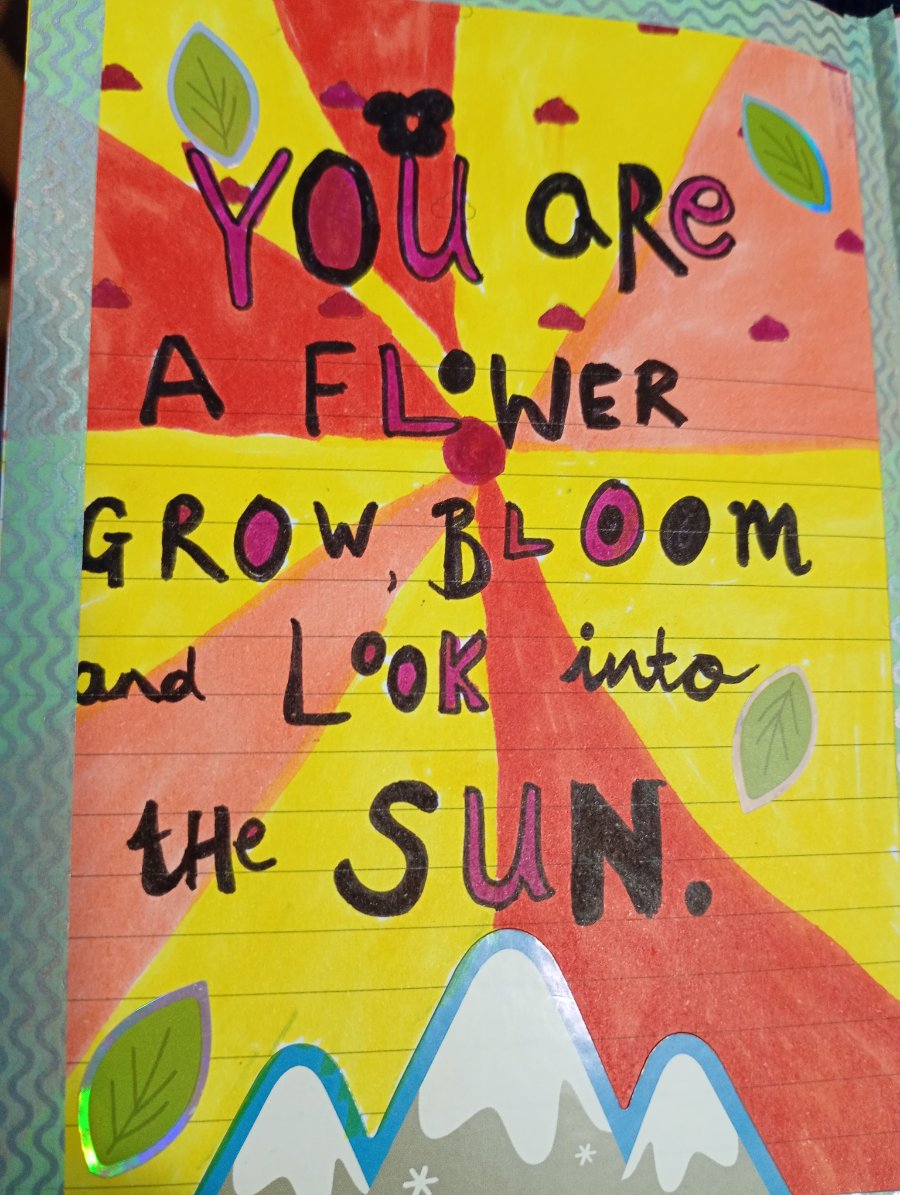 YOU are
A FLOWER
GROW, BLOOM
and LOOK into
tHe SUN.